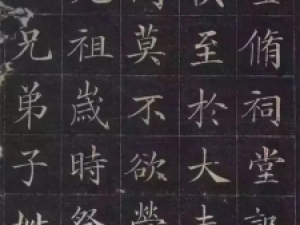 脩祠堂
至於大
莫不欲營
祖嵗時祭
兄弟子姓